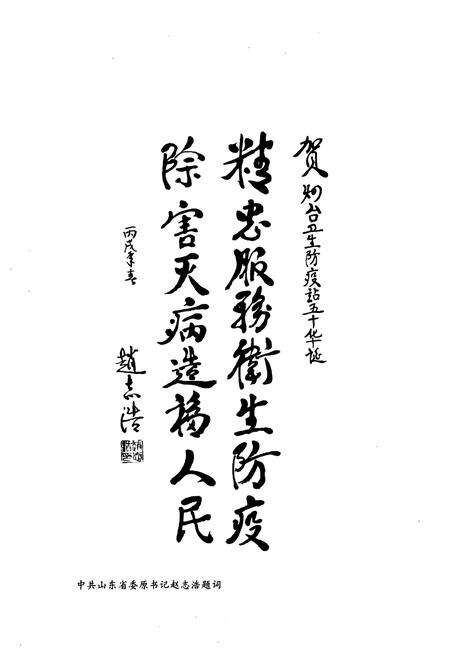 贺烟台卫生防疫站五十华诞
精忠服務衛生防疫
除害灭病造福人民
丙戌年春
趙志浩
中共山东省委原书记赵志浩题词